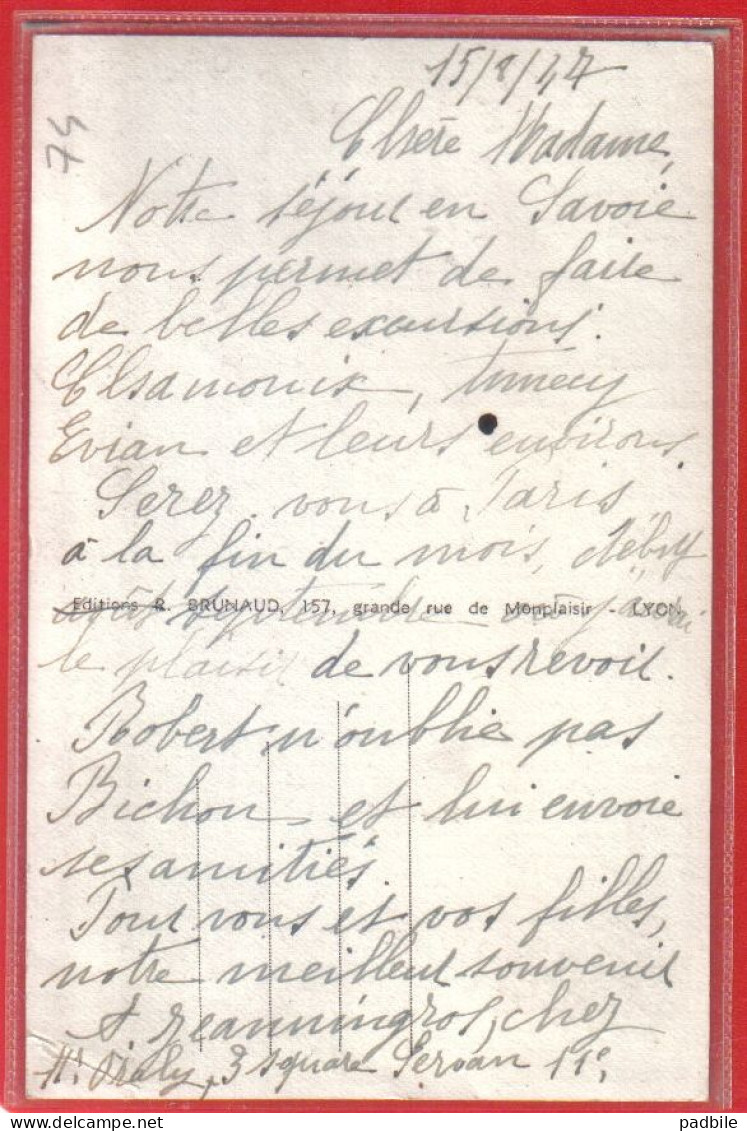 15/8/47
74
Chère Madame,
Notre séjour en Savoie
nous permet de faire
de belles excursions.
Chamonix, Annecy
Evian et leurs environs.
Serez-vous à Paris
à la fin du mois, début
Editions R. BRUNAUD, 157, grande rue de Monplaisir - LYON
septembre où j'aurai
le plaisir de vous revoir.
Robert n'oublie pas
Bichon et lui envoie
ses amitiés.
Pour vous et vos filles,
notre meilleur souvenir
A Jeanningros, chez
3 square Servan 11e
padbile